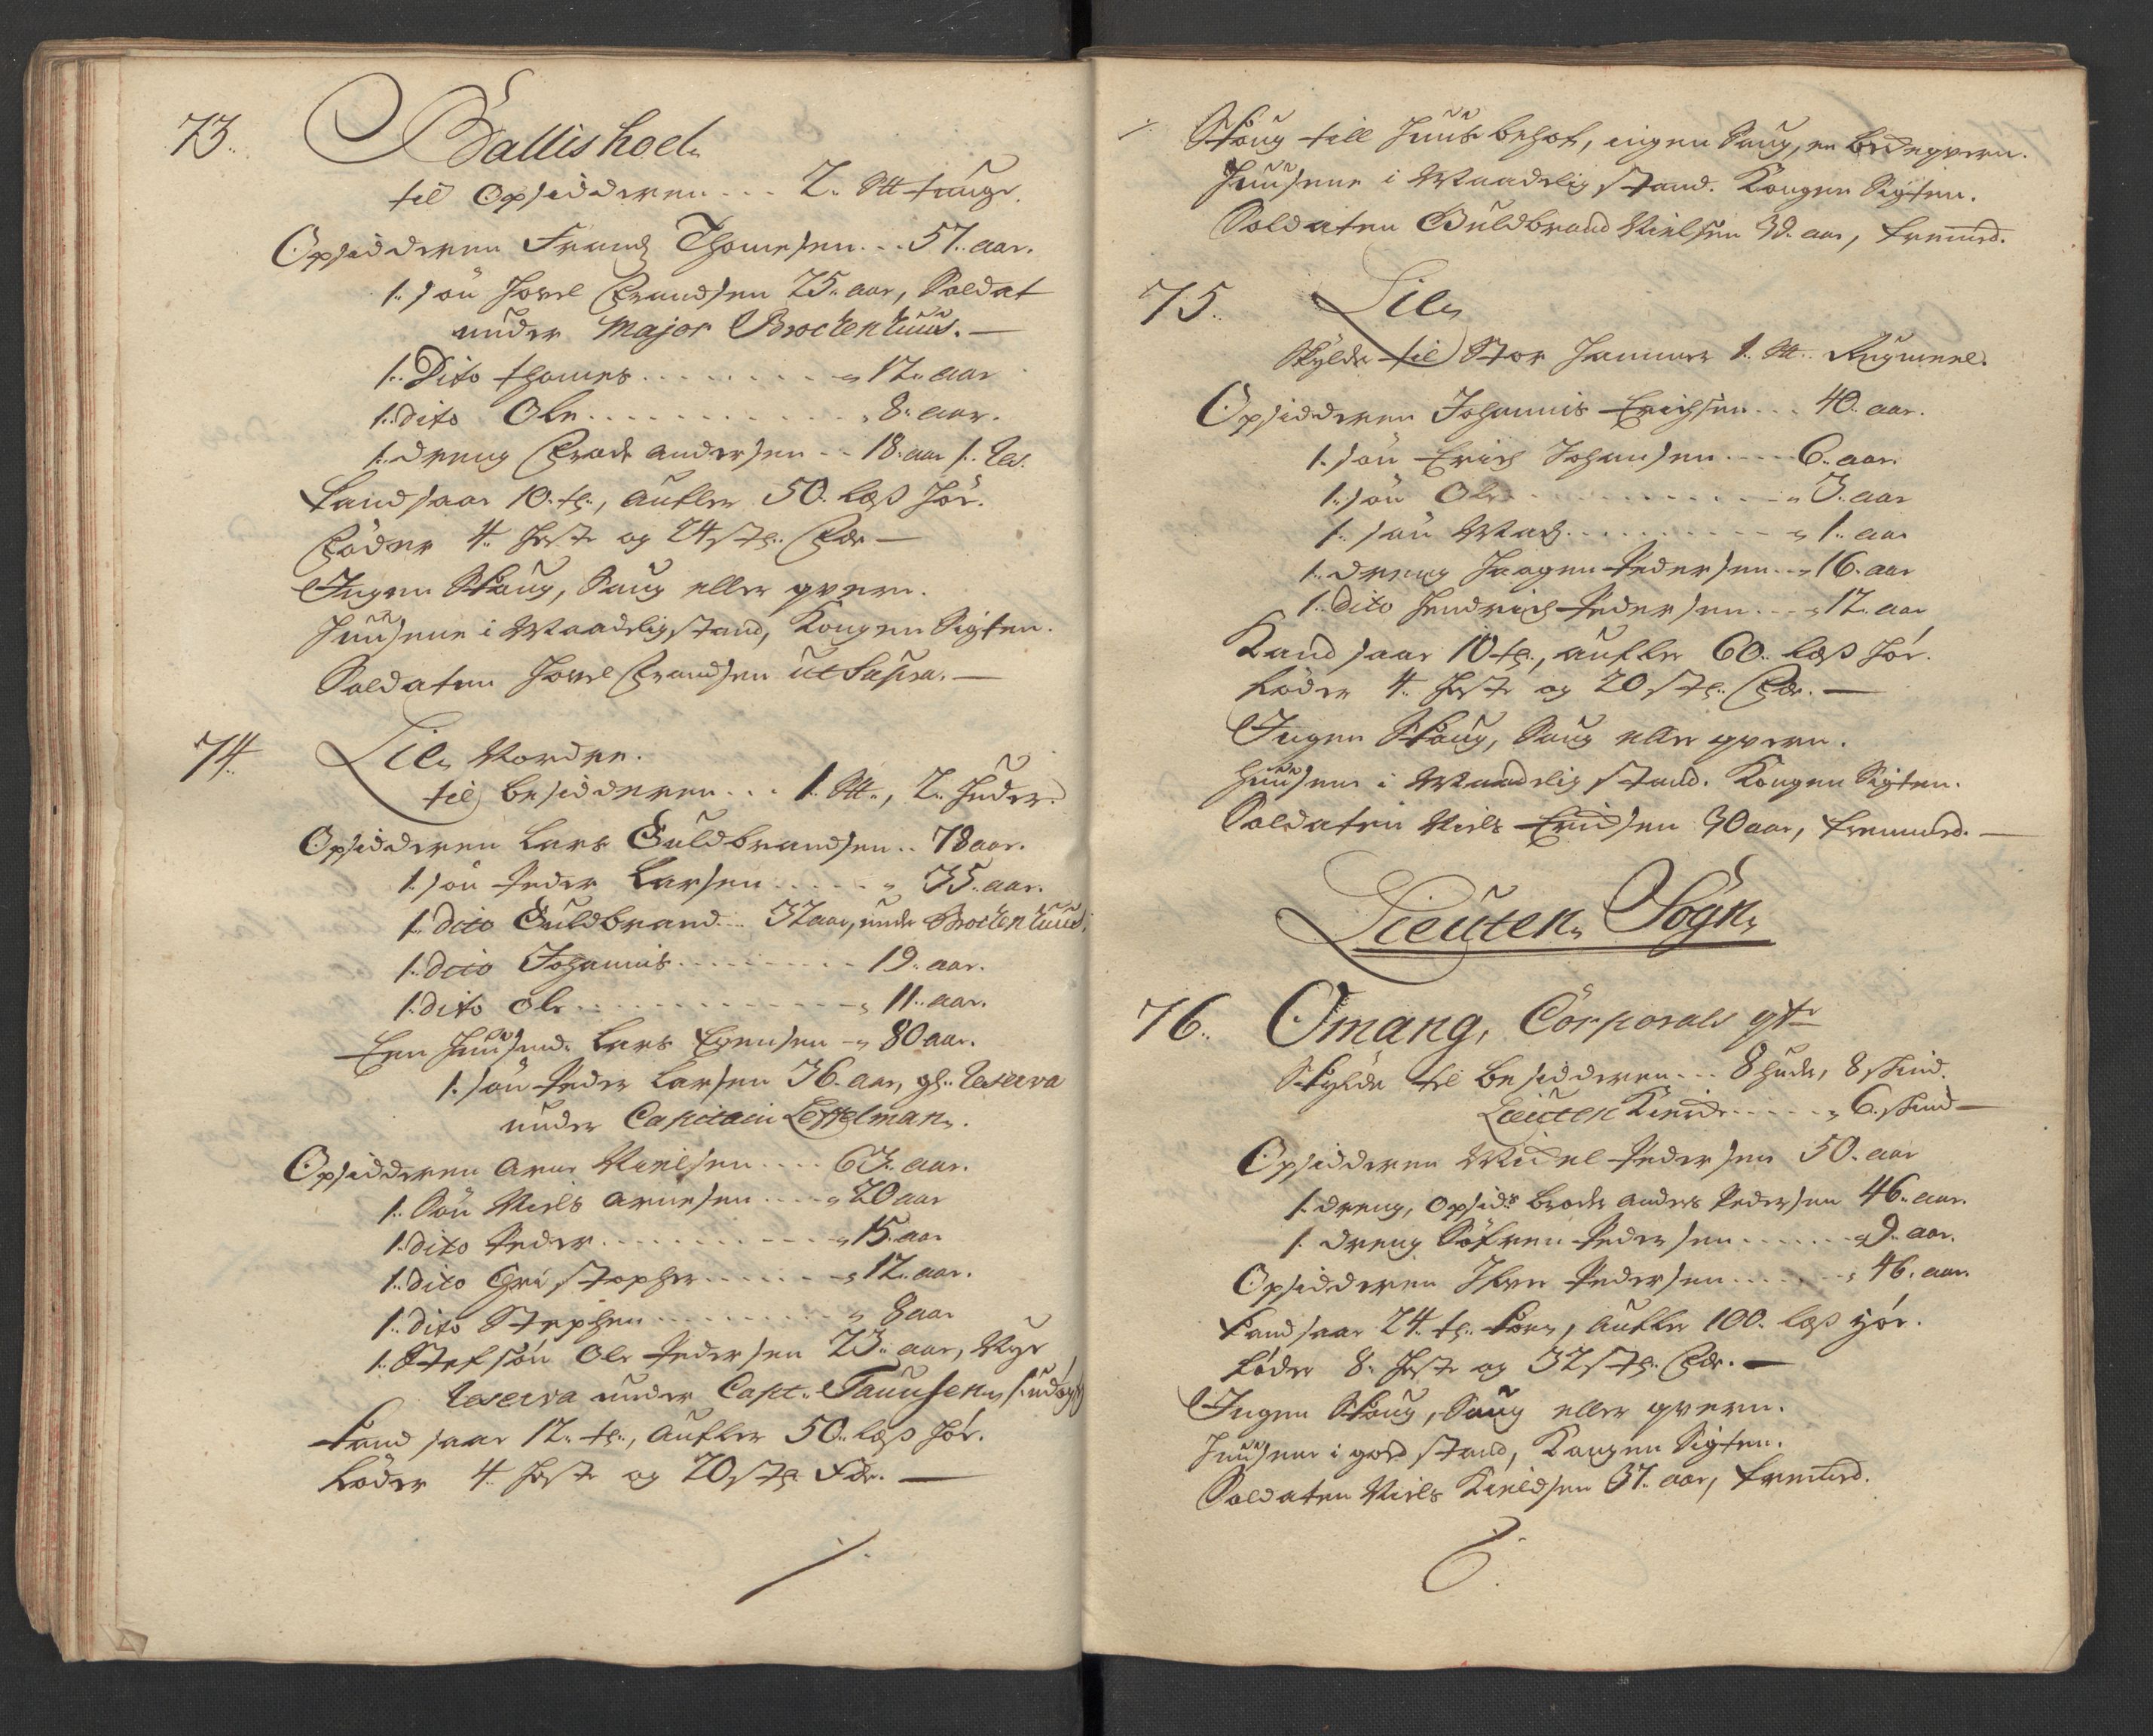 73. Ballishoel
til Opsidderen - - - 2. Sk tunge.
Opsidderen Frandz Thomesen - - 57. aar.
1. søn Joeel Frandsen 25. aar, Soldat
under Major Brockenhuus. —
1. Dito Thomes - - - - - - - - 12. aar
1. dito Ole - - - - - - - - - - 8. aar.
1. dreng Frode Andersen - - 18. aar f. Res.
Kand saae 10. tr., aufler 50. læs Høe.
Føder 4. heste og 24 stk. Fæe —
Ingen Skoug, Saug eller qvern.
Huusene i Maadelig stand, Kongen Sigten.
Soldaten Joeel Frandsen ut Supra. —
74. Lile Nordre.
til besidderen - - - 1. Sk., 2. Huder.
Opsidderen Lars Guldbrandsen - - 78 aar.
1. søn Peder Larsen - - - - - 35. aar.
1. dito Guldbrand - - 32 aar, under Brockenhuus.
1. dito Johannis - - - - - - - - 19. aar.
1. dito Ole - - - - - - - - - - 11. aar.
Een Huusmd. Lars Evensen - 80 aar.
1. søn Peder Larsen 36. aar, gl. Reserva
under Capitain Leffelman.
Opsidderen Arne Nielsen - - - - 63. aar.
1. Søn Niels Arnesen - - - - 20 aar
1. dito Peder - - - - - - - - - 15. aar
1. dito Christopher - - - - - - 12. aar.
1. dito Stephen - - - - - - - - 8 aar
1. Stefsøn Ole Pedersen 23. aar, Nye
Reserva under Capt. Tauusen,
Kand saae 12. tr., aufler 50. læs Høe.
Føder 4. heste og 20 stk Fæe. —
./.
./. Skoug till Huusbehof, ingen Saug, en beckeqvern.
Huusene i Maadelig stand. Kongen Sigten.
Soldaten Guldbrand Nielsen 39. aar, fremmed.
75. Lile
Skylder til Stor Hammer 1. Sk. Rugmeel.
Opsidderen Johannis Erichsen - - - 40. aar.
1. søn Erich Johansen - - - - 6. aar.
1. søn Ole - - - - - - - - - - - 3. aar
1. søn Madz - - - - - - - - - - 1. aar
1. dreng Haagen Pedersen - - 16. aar
1. Dito Hendrich Pedersen - - - 12. aar
Kand saae 10 tr., aufler 60. læs Høe.
Føder 4. heste og 20 stk. Fæe. —
Ingen Skoug, Saug eller qvern.
Huusene i Maadelig stand. Kongen Sigten.
Soldaten Niels Erichsen 30 aar, fremmed. —
Lieuten Sogn
76. Omang, Corporals gtr
Skylde til besidderen - - - 8 huder, 8 skind.
Lieuten Kierche - - - - - 6. skind —
Opsidderen Michel Pedersen 50. aar
1. dreng, opsids broder Anders Pedersen 46. aar.
1. dreng Søfren Pedersen - - - - - - 9. aar.
Opsidderen Iver Pedersen - - - - - - 46. aar.
Kand saae 24. tr. Korn, aufler 100. læs Høe.
Føder 8. heste og 32 stk. Fæe. —
Ingen Skoug, Saug eller qvern.
Huusene i god stand, Kongen Sigten.
Soldaten Niels Kieldsen 37. aar, fremmed.
./.